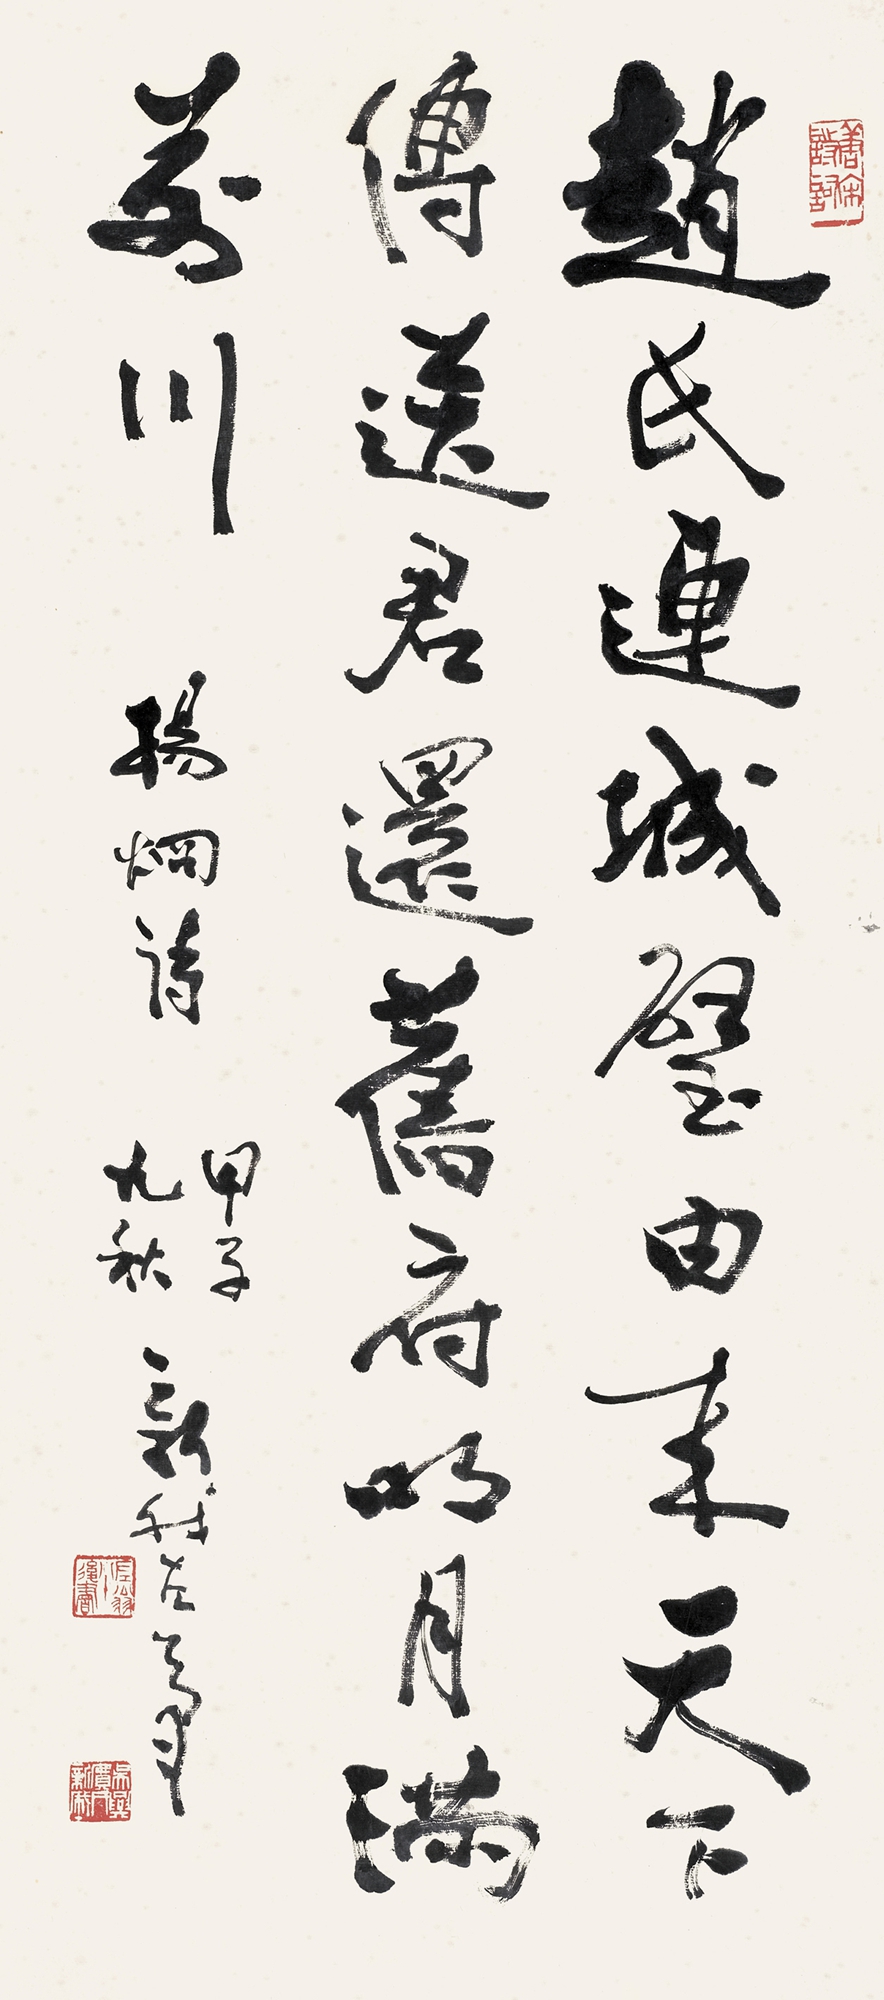 趙氏連城璧由來天下
傳送君還舊府明月滿
前川
楊炯詩
甲子
九秋
新我左
吳興費新我